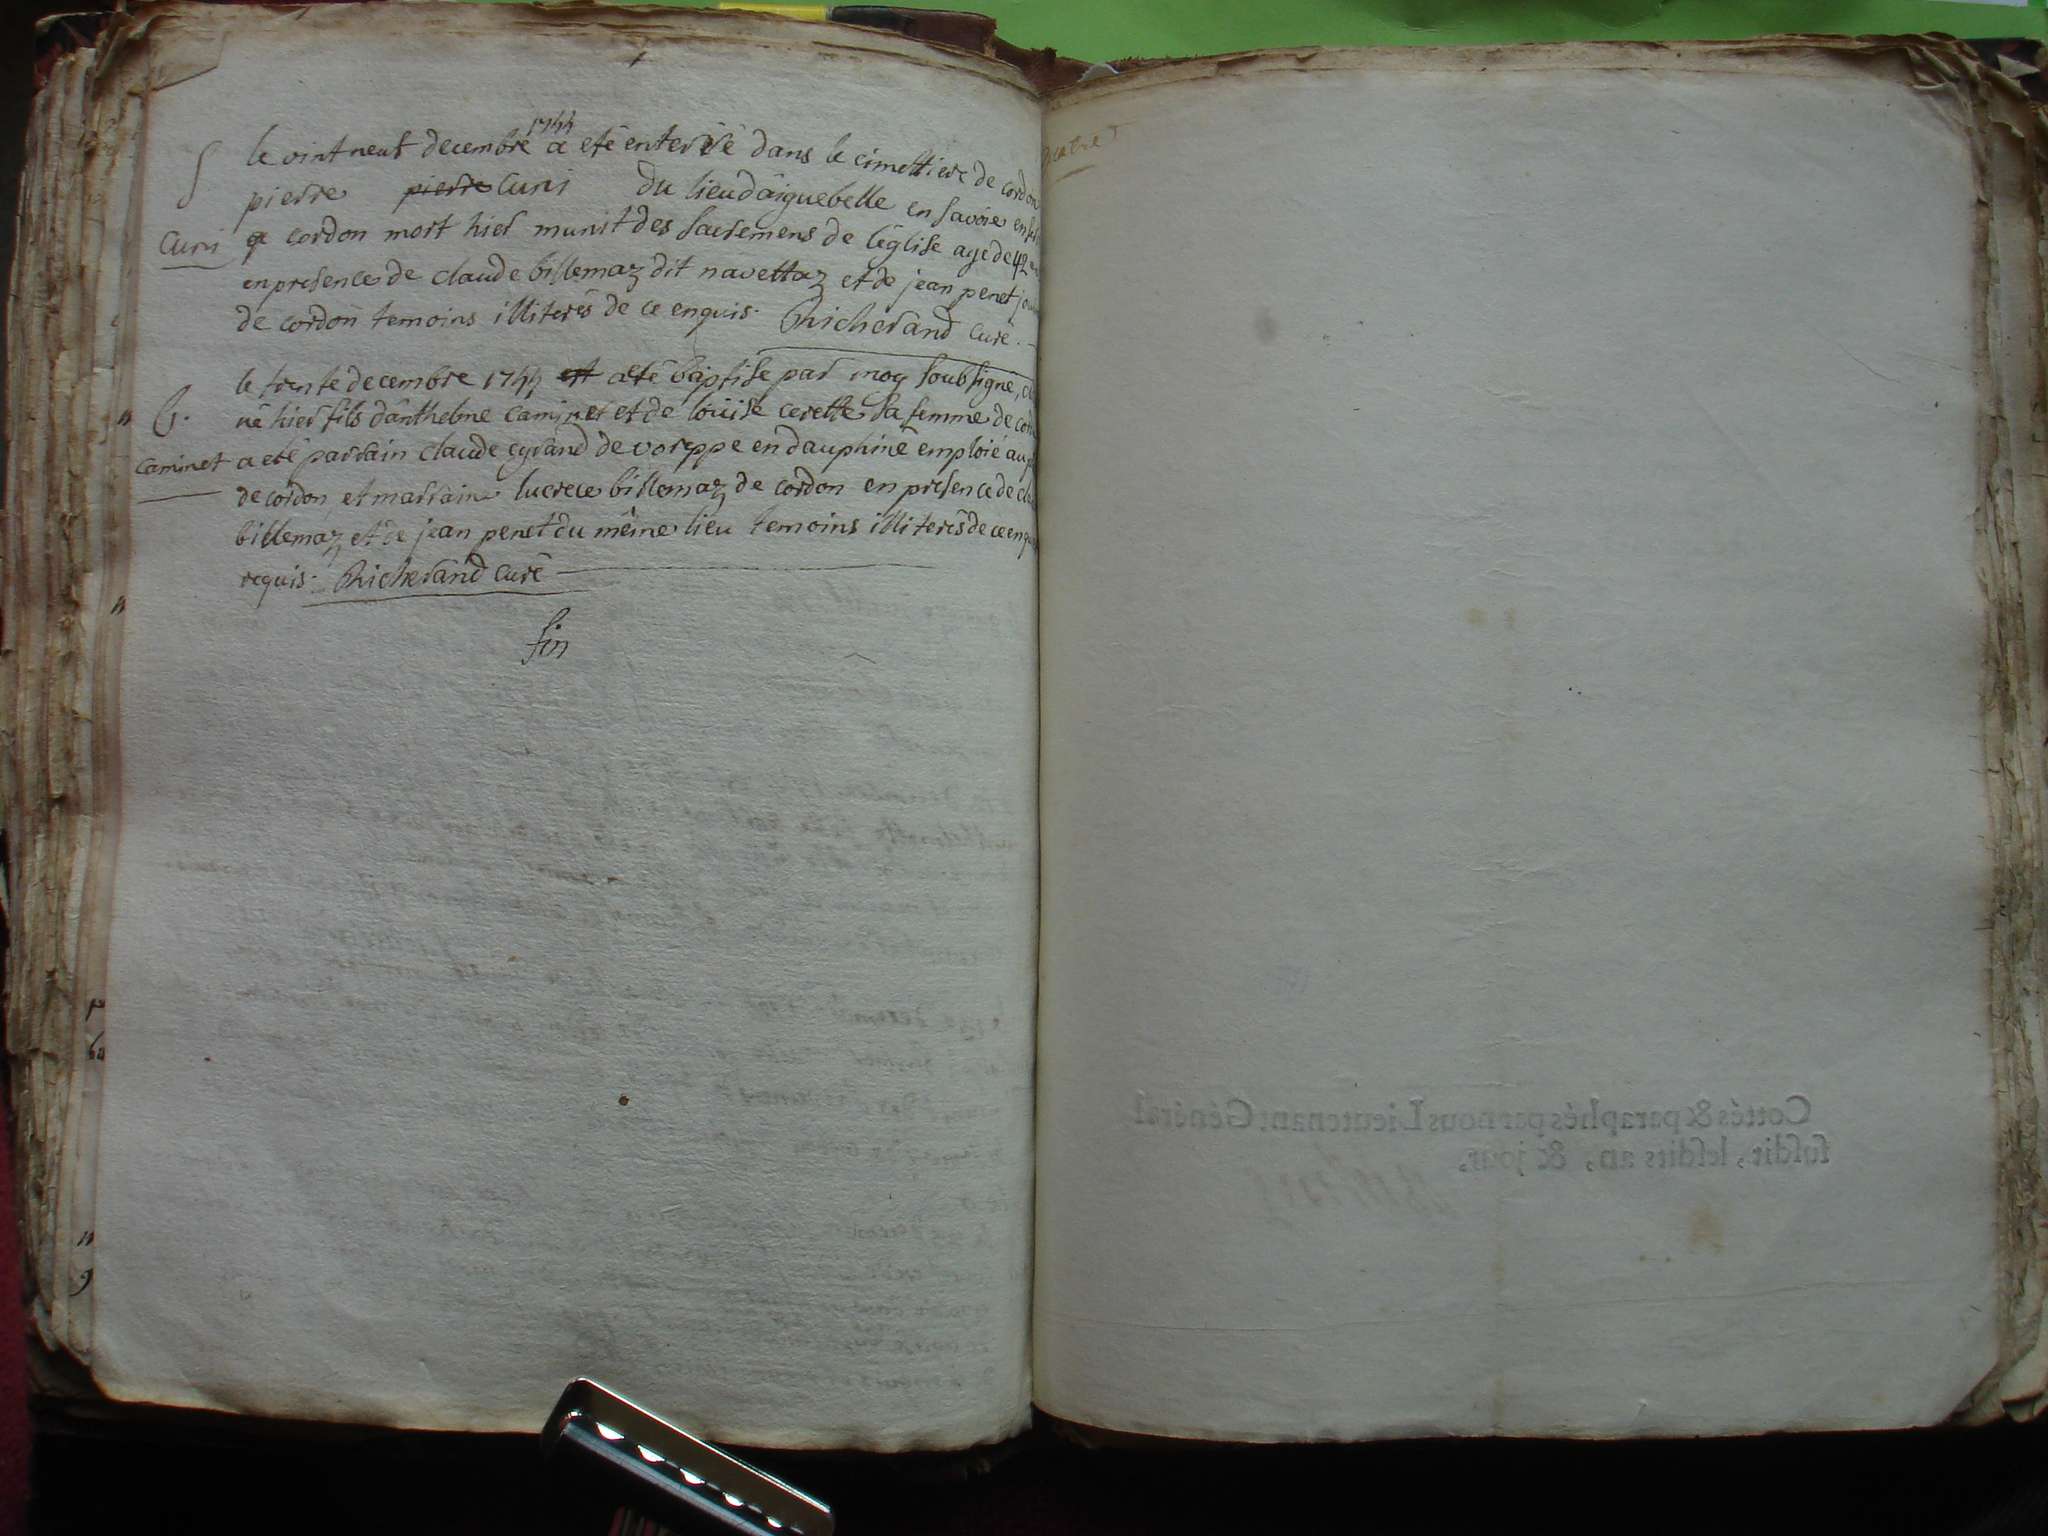 1744
le vint neuf decembre a eté enterré dans le cimettiere de cordon
S pierre pierre Curi du lieu d'aiguebelle en savoie
Curi a cordon mort hier munit des sacremens de l'église agé de 42
en presence de claude billemaz dit navettaz et de jean penet
de cordon temoins illiterés de ce enquis. Richerand curé.
le trente decembre 1744 a eté baptise par moy soubsigné,
B. né hier fils d'anthelme caminet et de loüise cerette sa femme de
caminet a eté parrain claude gyrand de voreppe en dauphiné emploié au
de cordon et marraine lucrece billemaz de cordon en presence de
billemaz et de jean penet du même lieu temoins illiterés de ce
requis. Richerand curé
fin
Cottés & paraphés par nous Lieutenant Général
susdit, lesdits an, & jour.